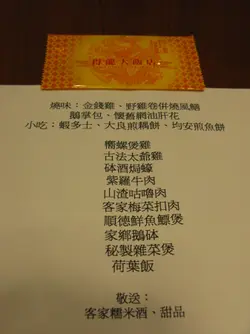 得龍大飯店
燒味：金錢雞、野雞卷併燒風鱔
鵝掌包、懷舊網油肝花
小吃：蝦多士、大良煎藕餅、均安煎魚餅
響螺煲雞
古法太爺雞
砵酒焗蠔
紫蘿牛肉
山渣咕嚕肉
客家梅菜扣肉
順德鮮魚鰾煲
家鄉鵝砵
秘製雜菜煲
荷葉飯
敬送：
客家糯米酒、甜品